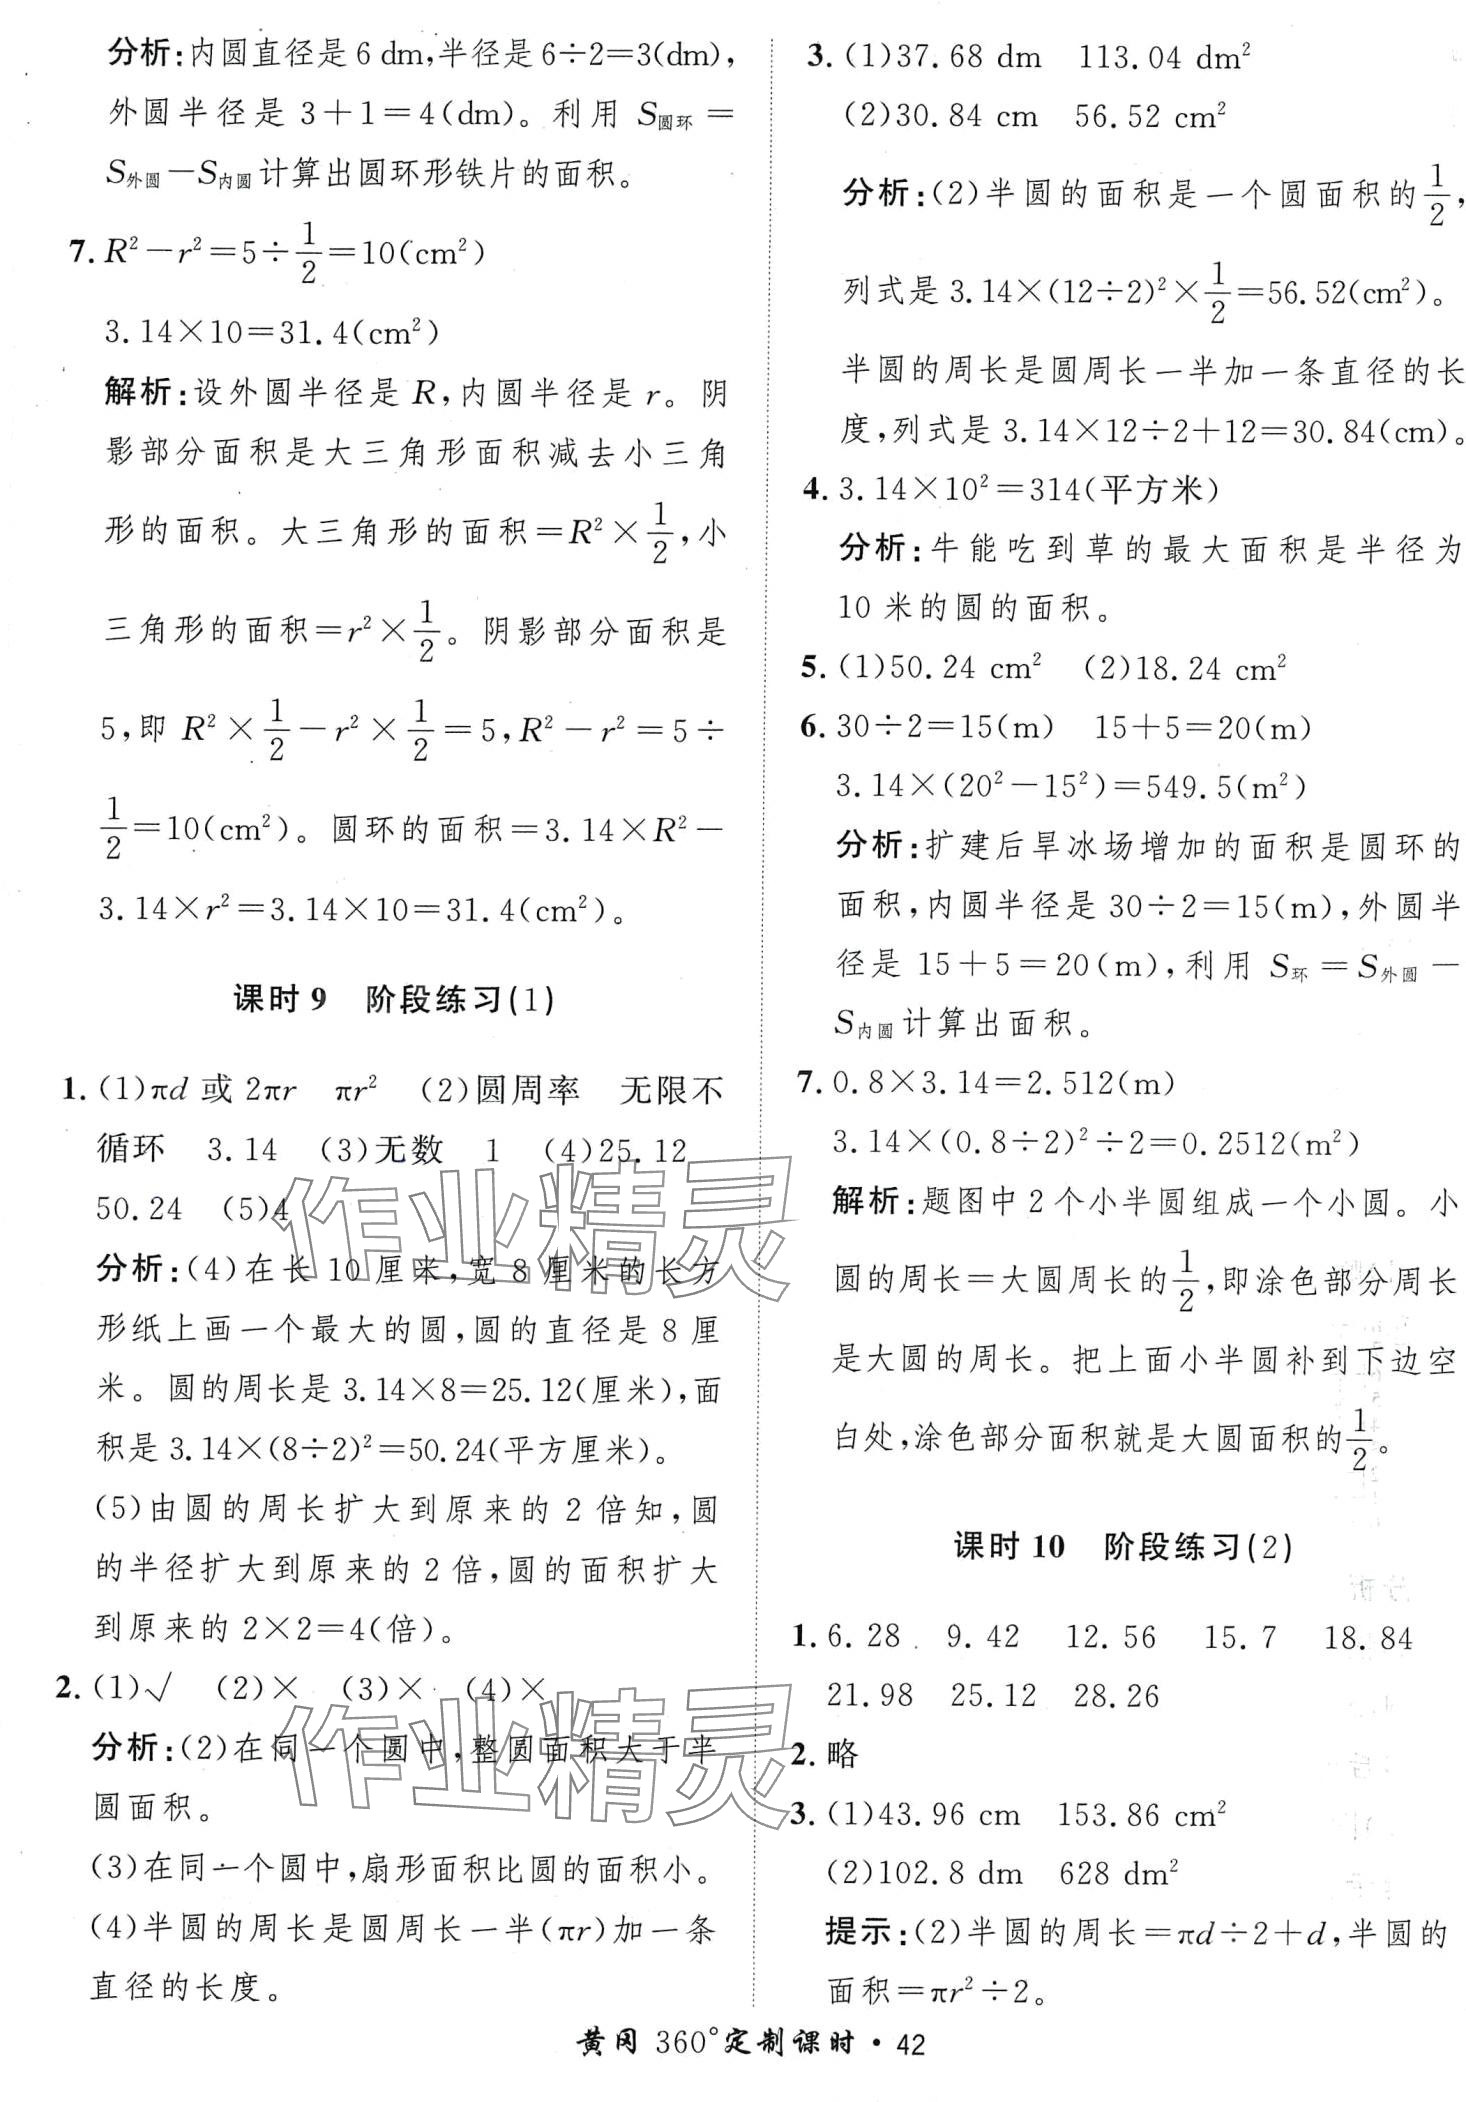 分析:内圆直径是6 dm,半径是6÷2=3(dm),
外圆半径是3+1=4(dm)。利用 S圆环=
S外圆-S内圆计算出圆环形铁片的面积。
7. R²-r²=5÷1/2=10(cm²)
3.14×10=31.4(cm²)
解析:设外圆半径是R,内圆半径是r。阴
影部分面积是大三角形面积减去小三角
形的面积。大三角形的面积=R²×1/2,小
三角形的面积=r²×1/2。阴影部分面积是
5,即 R²×1/2-r²×1/2=5,R²-r²=5÷
1/2=10(cm²)。圆环的面积=3.14×R²-
3.14×r²=3.14×10=31.4(cm²)。
课时9 阶段练习(1)
1. (1)πd 或 2πr πr² (2)圆周率 无限不
循环 3.14 (3)无数 1 (4)25.12
50.24 (5)4
分析:(4)在长10厘米,宽8厘米的长方
形纸上画一个最大的圆,圆的直径是8厘
米。圆的周长是3.14×8=25.12(厘米),面
积是3.14×(8÷2)²=50.24(平方厘米)。
(5)由圆的周长扩大到原来的2倍知,圆
的半径扩大到原来的2倍,圆的面积扩大
到原来的2×2=4(倍)。
2. (1)√ (2)× (3)× (4)×
分析:(2)在同一个圆中,整圆面积大于半
圆面积。
(3)在同一个圆中,扇形面积比圆的面积小。
(4)半圆的周长是圆周长一半(πr)加一条
直径的长度。
3. (1)37.68 dm 113.04 dm²
(2)30.84 cm 56.52 cm²
分析:(2)半圆的面积是一个圆面积的1/2,
列式是3.14×(12÷2)²×1/2=56.52(cm²)。
半圆的周长是圆周长一半加一条直径的长
度,列式是3.14×12÷2+12=30.84(cm)。
4. 3.14×10²=314(平方米)
分析:牛能吃到草的最大面积是半径为
10米的圆的面积。
5. (1)50.24 cm² (2)18.24 cm²
6. 30÷2=15(m) 15+5=20(m)
3.14×(20²-15²)=549.5(m²)
分析:扩建后旱冰场增加的面积是圆环的
面积,内圆半径是30÷2=15(m),外圆半
径是15+5=20(m),利用 S环=S外圆-
S内圆计算出面积。
7. 0.8×3.14=2.512(m)
3.14×(0.8÷2)²÷2=0.2512(m²)
解析:题图中2个小半圆组成一个小圆。小
圆的周长=大圆周长的1/2,即涂色部分周长
是大圆的周长。把上面小半圆补到下边空
白处,涂色部分面积就是大圆面积的1/2。
课时10 阶段练习(2)
1. 6.28 9.42 12.56 15.7 18.84
21.98 25.12 28.26
2. 略
3. (1)43.96 cm 153.86 cm²
(2)102.8 dm 628 dm²
提示:(2)半圆的周长=πd÷2+d,半圆的
面积=πr²÷2。
黄冈 360°定制课时·42
作业精灵
作业精灵